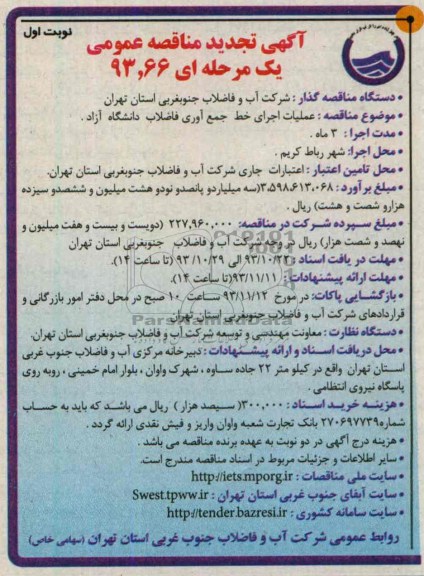 نوبت اول
آگهی تجدید مناقصه عمومی
یک مرحله ای ۹۳,۶۶
• دستگاه مناقصه گذار : شرکت آب و فاضلاب جنوبغربی استان تهران
• موضوع مناقصه : عملیات اجرای خط جمع آوری فاضلاب دانشگاه آزاد .
• مدت اجرا : ۳ ماه .
• محل اجرا: شهر رباط کریم .
• محل تامین اعتبار : اعتبارات جاری شرکت آب و فاضلاب جنوبغربی استان تهران.
• مبلغ برآورد : ۳،۵۹۸،۶۱۳،۰۶۸(سه میلیاردو پانصدو نودو هشت میلیون و ششصدو سیزده
هزارو شصت و هشت) ریال .
• مبلغ سپرده شرکت در مناقصه: ۲۲۷,۹۶۰,۰۰۰ (دویست و بیست و هفت میلیون و
نهصد و شصت هزار) ریال در وجه شرکت آب و فاضلاب جنوبغربی استان تهران
• مهلت در یافت اسناد : ۹۳/۱۰/۲۲ الی ۹۳/۱۰/۲۹ (تا ساعت ۱۴).
• مهلت ارائه پیشنهادات : ۹۳/۱۱/۱۱(تا ساعت ۱۴).
• بازگشایی پاکات: در مورخ ۹۳/۱۱/۱۲ ساعت ۱۰ صبح در محل دفتر امور بازرگانی و
قراردادهای شرکت آب و فاضلاب جنوبغربی استان تهران
• دستگاه نظارت : معاونت مهندسی و توسعه شرکت آب و فاضلاب جنوبغربی استان تهران.
• محل دریافت اسناد و ارائه پیشنهادات : دبیرخانه مرکزی آب و فاضلاب جنوب غربی
استان تهران واقع در کیلو متر ۲۲ جاده ساوه ، شهرک واوان ، بلوار امام خمینی ، روبه روی
پاسگاه نیروی انتظامی .
• هزینه خرید اسناد : ۳۰۰,۰۰۰( سیصد هزار ) ریال می باشد که باید به حساب
شماره۲۷۰۶۹۷۷۳۹ بانک تجارت شعبه واوان واریز و فیش نقدی ارائه گردد .
• هزینه درج آگهی در دو نوبت به عهده برنده مناقصه می باشد .
• سایر اطلاعات و جزئیات مربوط در اسناد مناقصه مندرج است.
• سایت ملی مناقصات : http://iets.mporg.ir
• سایت آبفای جنوب غربی استان تهران : Swest.tpww.ir
• سایت سامانه کشوری : http://tender.bazresi.ir
روابط عمومی شرکت آب و فاضلاب جنوب غربی استان تهران (سهامی خاص)